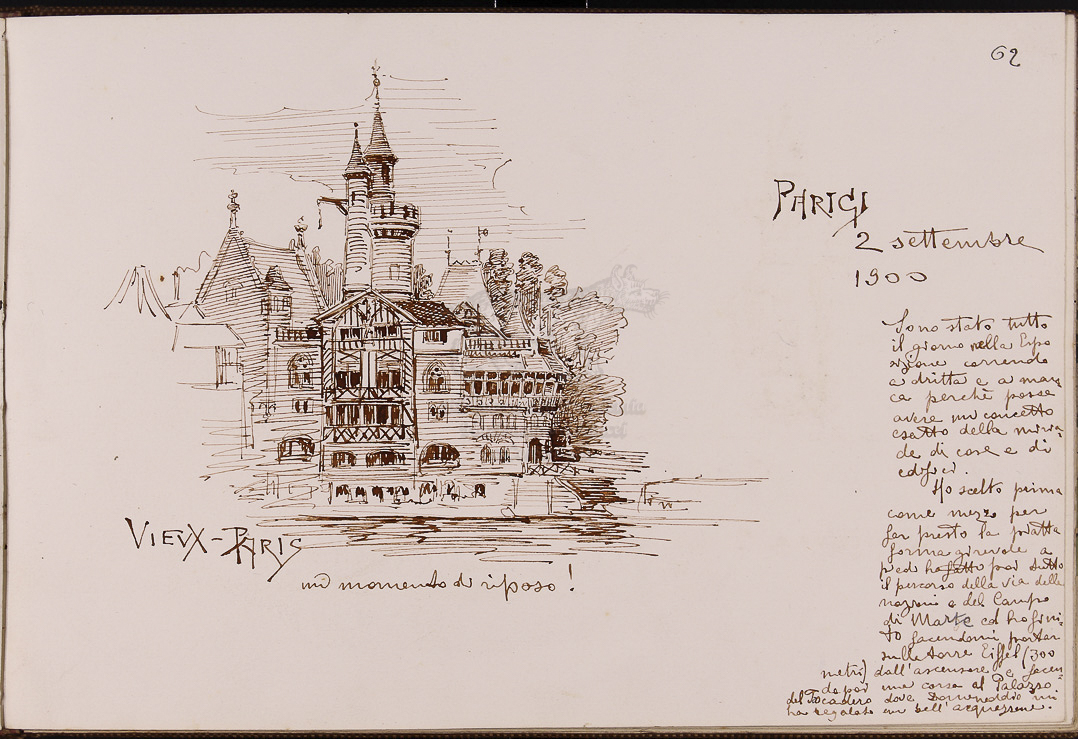 62
PARIGI
2 settembre
1900
Sono stato tutto
il giorno nella Espo
sizione correndo
a dritta e a man
ca perchè possa
avere un concetto
esatto della miria-
de di cose e di
edifici.
Ho scelto prima
come mezzo per
far presto la piatta
forma girevole a
piedi ho fatto poi tutto
il percorso della via delle
nazioni e del Campo
di Marte ed ho fini-
to facendomi portar
sulla torre Eiffel (300
metri) dall'ascensore e facen
do poi una corsa al Palazzo
del Trocadero dove Domeneddio mi
ha regalato un bell'acquazzone.
VIEUX-PARIS
un momento di riposo!